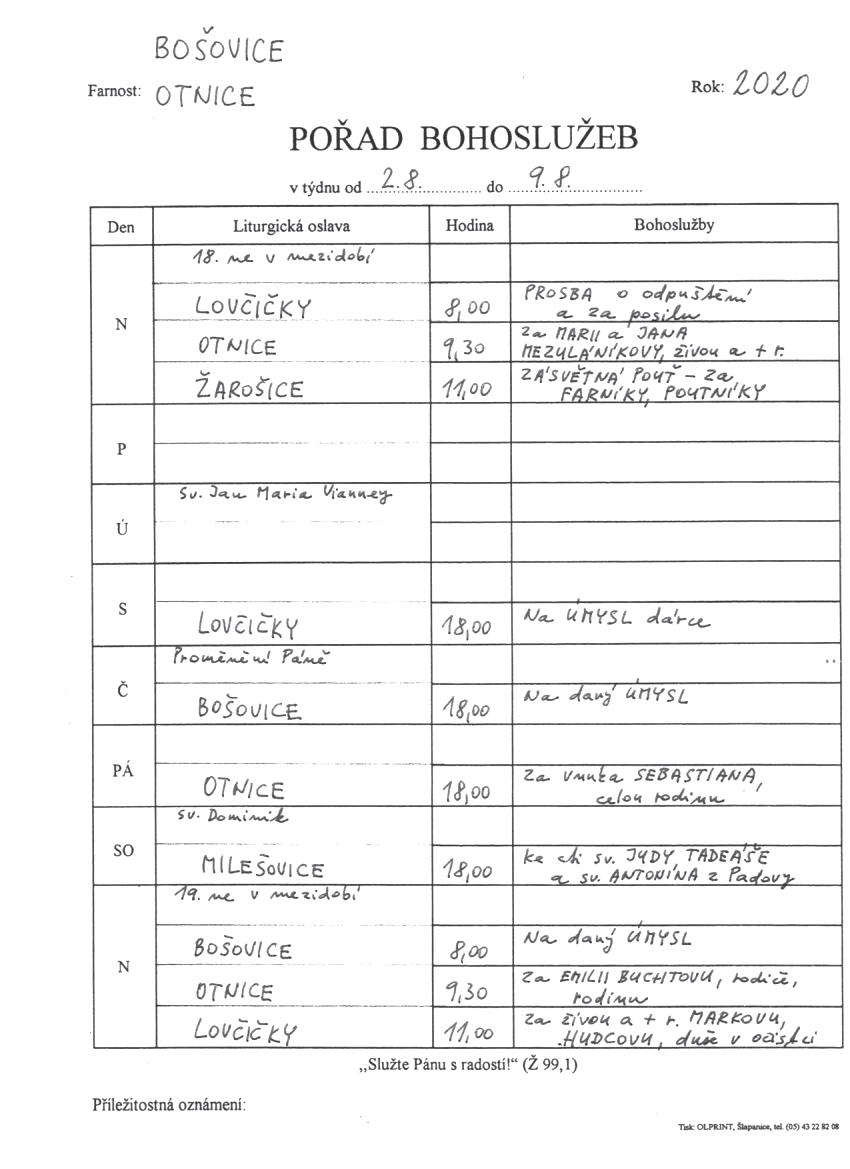 BOŠOVICE
Farnost: OTNICE
Rok: 2020
POŘAD BOHOSLUŽEB
v týdnu od 2.8. do 9.8.
Den Liturgická oslava Hodina Bohoslužby
N
18. ne v mezidobí
LOVČIČKY 8,00 PROSBA o odpuštění
a za posilu
OTNICE 9,30 za MARII a JANA
MEZULÁNÍKOVY, živou a + r.
ŽAROŠICE 11,00 ZÁSVĚTNÁ POUŤ - za
FARNÍKY, POUTNÍKY
P
Ú
Sv. Jan Maria Vianney
S
LOVČIČKY 18,00 Na ÚMYSL dárce
Č
Proměnění Páně
BOŠOVICE 18,00 Na daný ÚMYSL
PÁ
OTNICE 18,00 Za vnuka SEBASTIANA,
celou rodinu
SO
sv. Dominik
MILEŠOVICE 18,00 ke cti sv. JUDY TADEÁŠE
a sv. ANTONÍNA z Padovy
N
19. ne v mezidobí
BOŠOVICE 8,00 Na daný ÚMYSL
OTNICE 9,30 Za EMILII BUCHTOVU, rodiče,
rodinu
LOVČIČKY 11,00 Za živou a + r. MARKOVU,
HUDCOVU, duše v očistci
„Služte Pánu s radostí!“ (Ž 99,1)
Příležitostná oznámení:
Tisk: OLPRINT, Šlapanice, tel. (05) 43 22 82 08